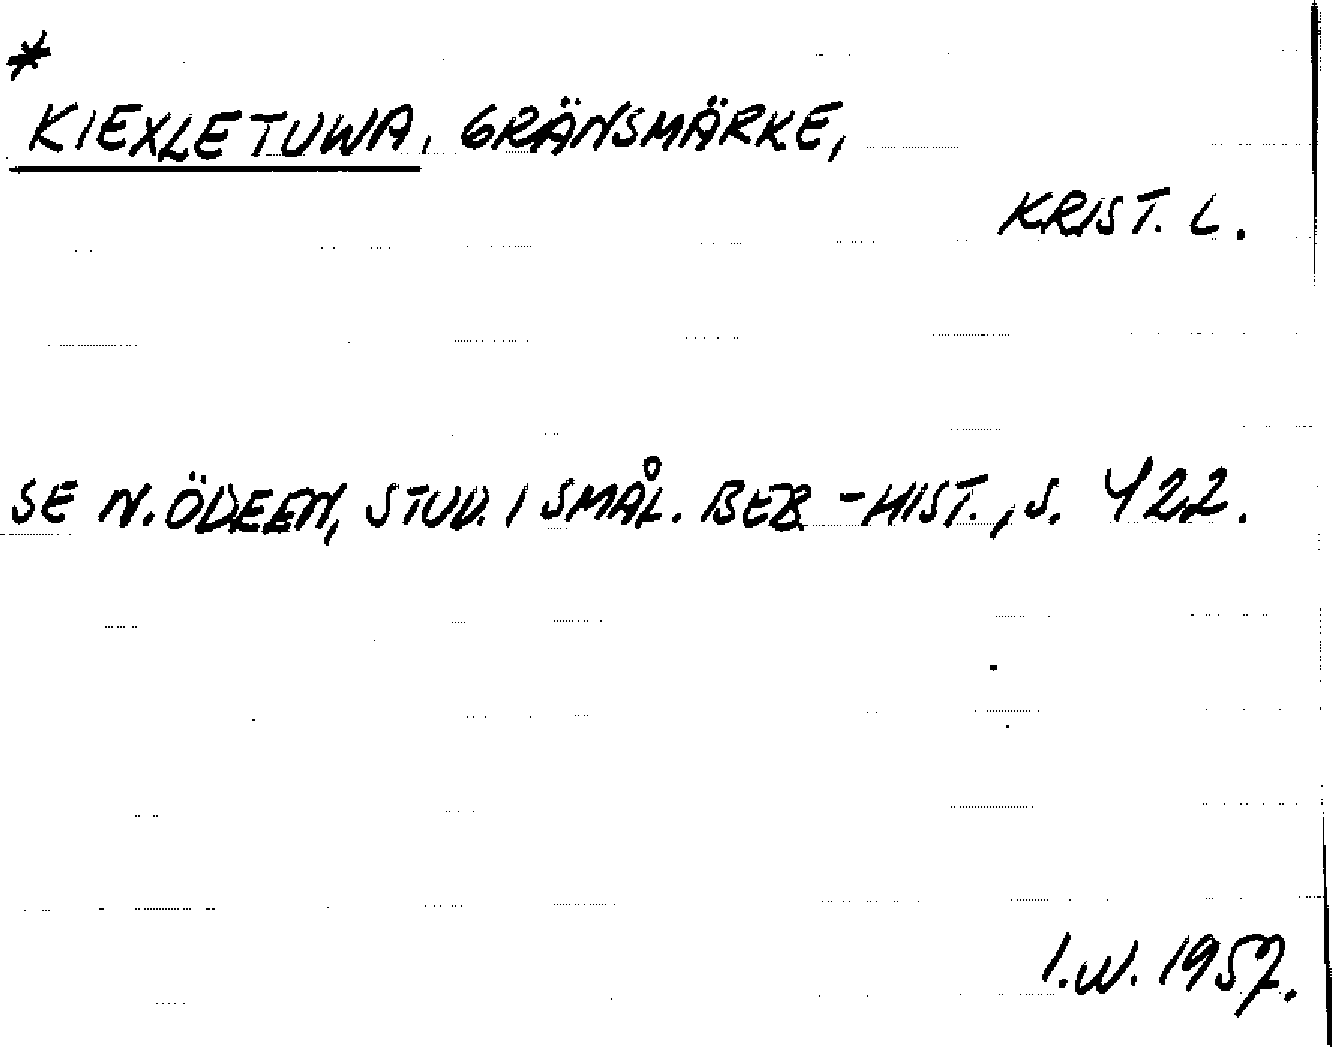 *
KIEXLETUWA, GRÄNSMÄRKE,
KRIST. L.
SE N. ÖDEEN, STUD. I SMÅL. BEB.-HIST., S. 422.
I.W. 1957.